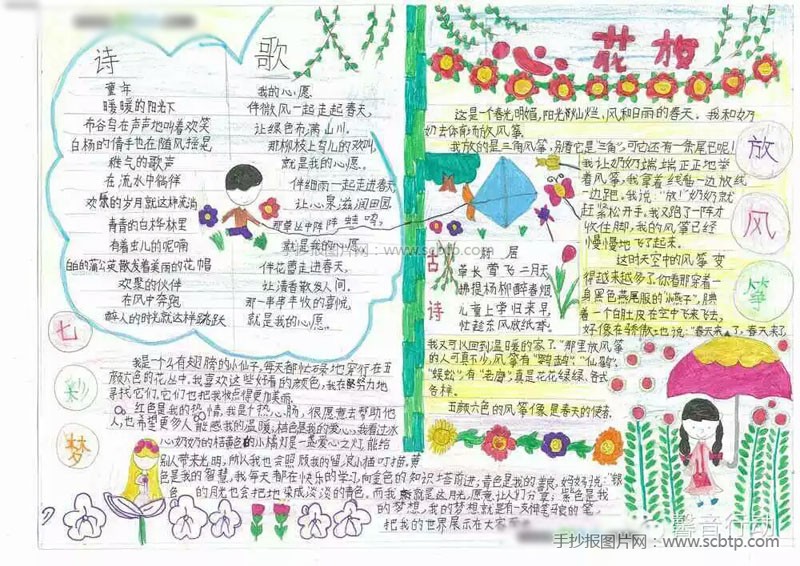 诗 歌
童年
暖暖的阳光下
布谷鸟在声声地叫着欢笑
白杨的倩手也在随风摇晃
稚气的歌声
在流水中徜徉
欢乐的岁月就这样流淌
青青的白桦林里
有着虫儿的呢喃
白白的蒲公英散发着美丽的花帽
欢聚的伙伴
在风中奔跑
醉人的时光就这样跳跃
我的心愿
伴微风一起走起春天,
让绿色布满山川,
那柳枝上鸟儿的欢叫,
就是我的心愿。
伴细雨一起走进春天
让心泉滋润田园
那草丛中阵阵蛙鸣,
就是我的心愿
伴花香走进春天,
让清香散发人间。
那一串串丰收的喜悦,
就是我的心愿。
七彩梦
我是个有翅膀的小仙子,每天都忙碌地穿行在五
颜六色的花丛中,我喜欢这些好看的颜色,我在努力地
寻找它们,它们也把我妆点得更加美丽。
红色是我的热情,我是个热心肠,很愿意去帮助他
人,也希望更多人能感我的温暖;桔色是我的爱心,我看过冰
心奶奶的桔黄色的小橘灯是一盏爱心之灯,能给
别人带来光明,所以我也会照顾我的留浪小猫叮猫,黄
色是我的智慧,我每天都在快乐的学习,向金色的知识塔前进;青色是我的善良,妈妈说:"银
色的月光也会把地染成淡淡的青色,而我就是这月光,愿意让人们分享;紫色是我
的梦想,我的梦想就是有一支神笔马良的笔,
把我的世界展示在大家
心花放
放风筝
这是一个春光明媚,阳光灿烂,风和日丽的春天。我和奶
奶去体育场放风筝。
我放的是三角风筝,别看它是三角,可它还有一条尾巴呢!
我让奶奶端端正正地举
着风筝,我拿着线轴一边放线
一边跑,我说"放!"奶奶就
赶紧松开手,我又跑了一阵才
收住脚,我的风筝已经
慢慢地飞了起来。
这时天空中的风筝变
得越来越多了,你看那穿着一
身黑色燕尾服的"小燕子",腆
着一个白肚皮在空中飞来飞去,
好像在骄傲地说:"春天来了,春天来了
我又可以回到温暖的家了。"那里放风筝
的人可真不少,风筝有"鹦鹉""仙歌"
"蜈蚣",有"老鹰",真是花花绿绿、各式
各样。
五颜六色的风筝像是春天的使者。
古诗
村居
草长莺飞二月天
拂堤杨柳醉春烟
儿童上学归来早
忙趁东风放纸鸢。
手抄报图片网:www.scbtp.com
馨音行动
手抄报图片网:www.scbtp.com